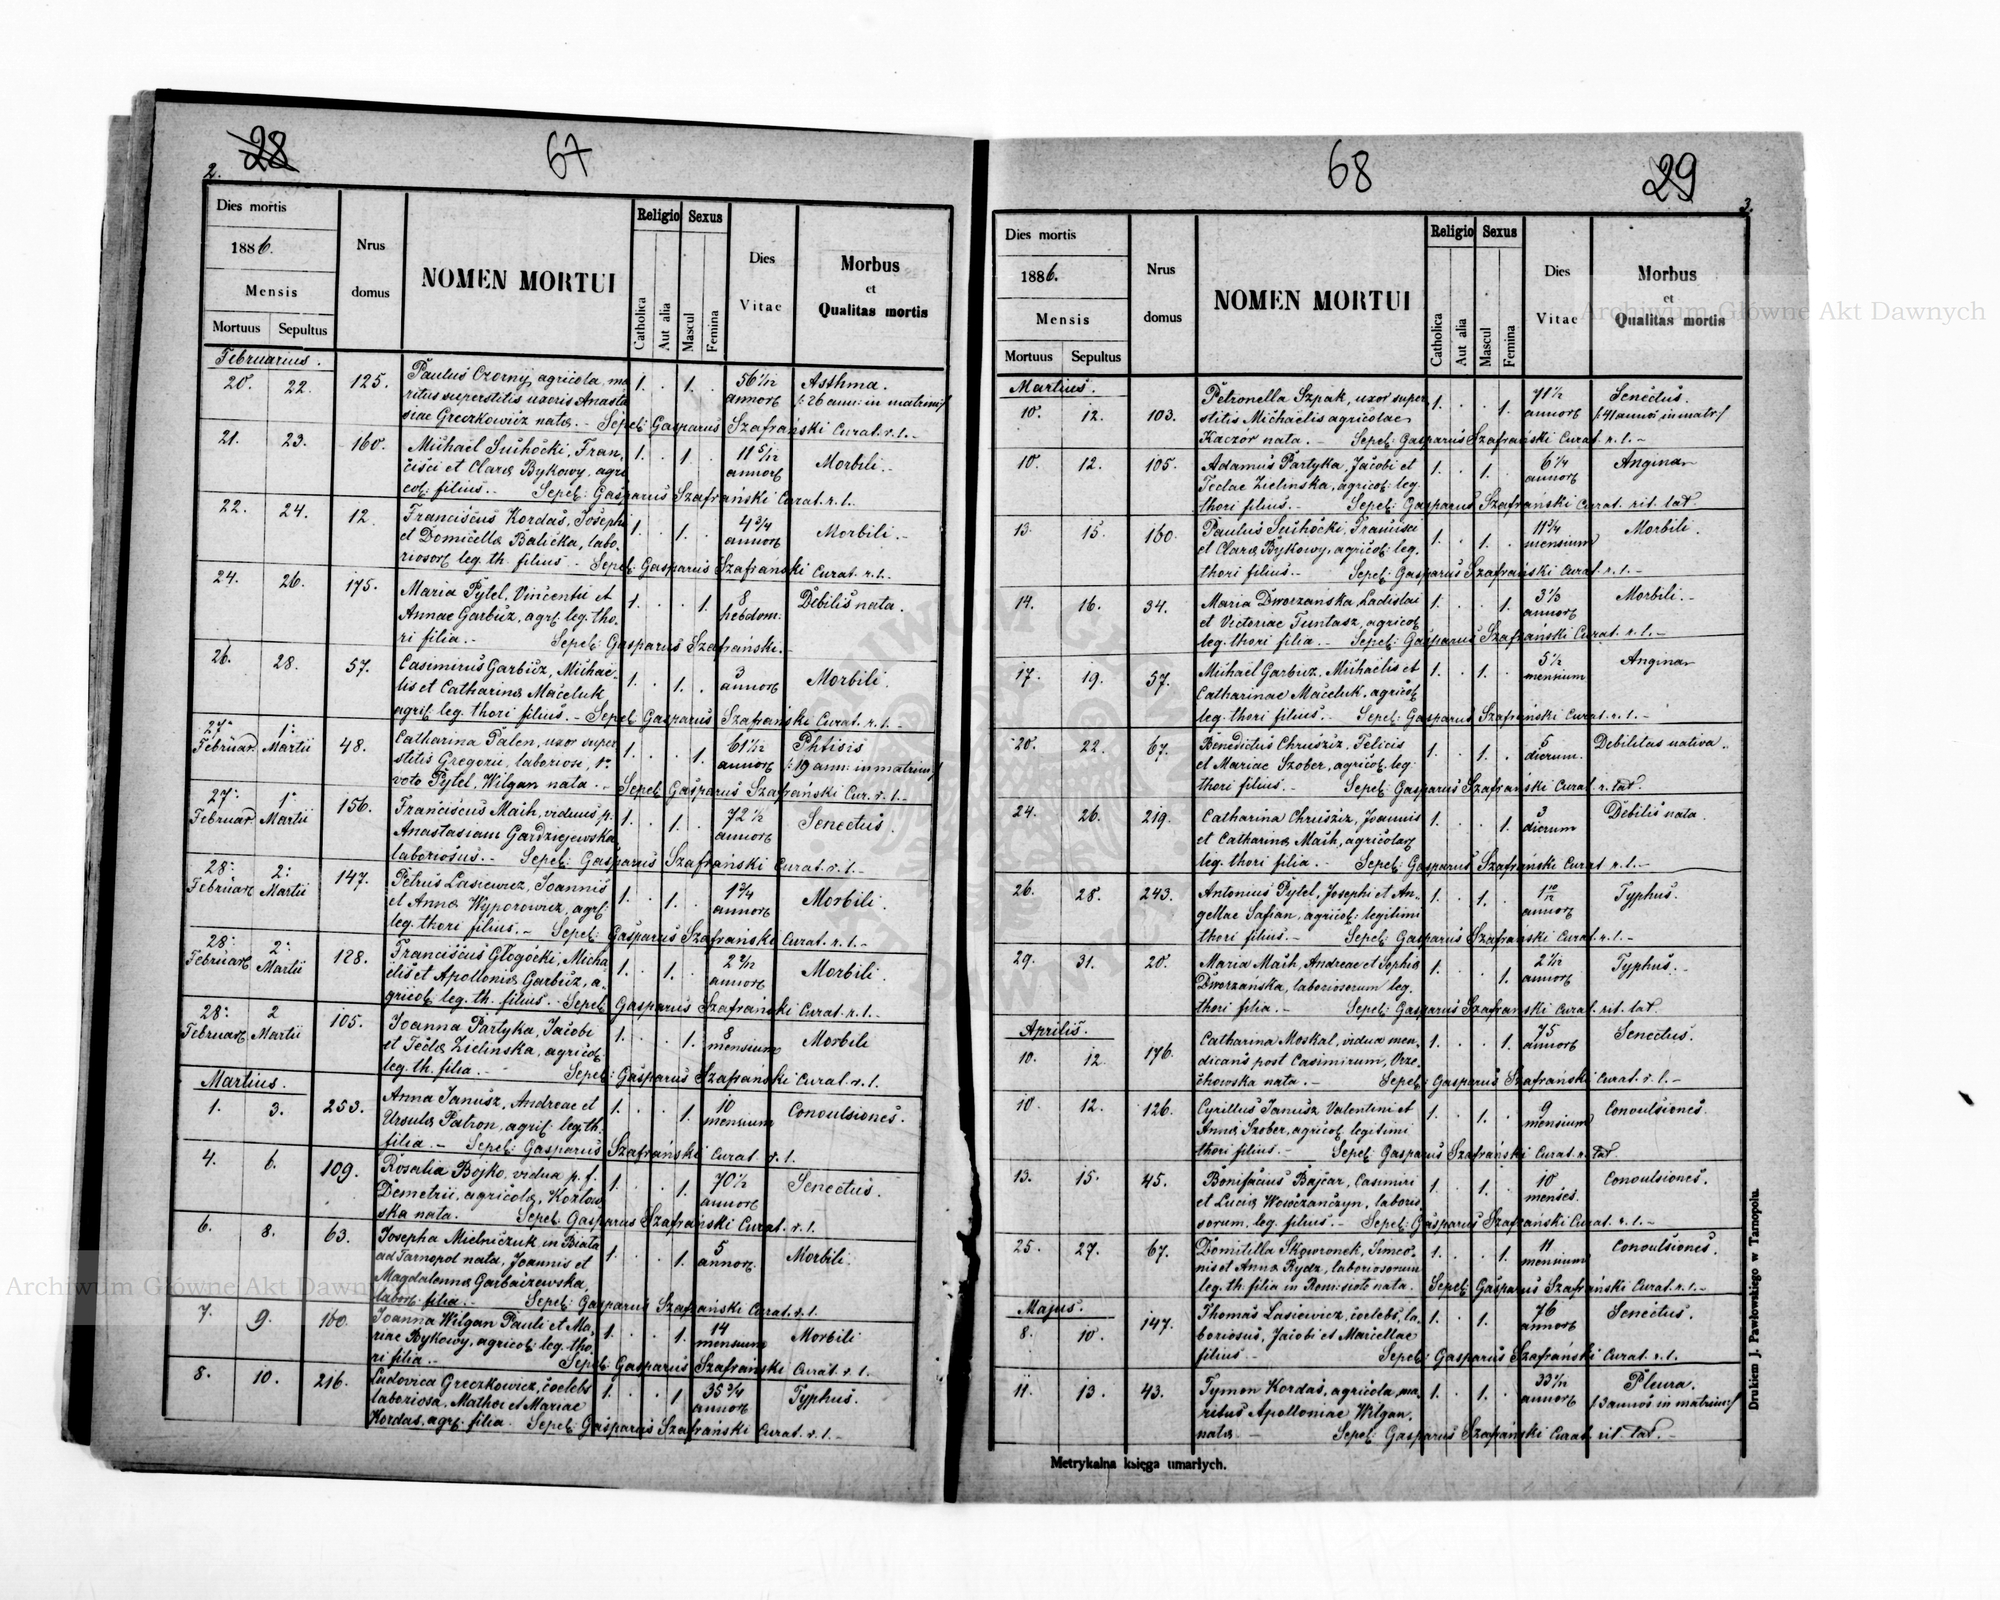 2.
28
67
Dies mortis
1886.
Mensis
Mortuus Sepultus
Nrus
domus
NOMEN MORTUI
Religio
Catholica
Aut alia
Sexus
Mascul
Femina
Dies
Vitae
Morbus
et
Qualitas mortis
Februarius.
20. 22. 125. Paulus Czorny, agricola, ma- 1. . 1. . 56 1/12 Asthma.
ritus superstitis uxoris Anasta annorb /: 26 ann: in matrim:/
siae Greczkowicz nata. – Sepel: Gasparus Szafrański Curat. r. l. –
21. 23. 160. Michael Suchocki, Fran- 1. . 1. . 11 5/12 Morbili.
cisci et Clara Bykowy, agri annorb
col: filius. – Sepel: Gasparus Szafrański Curat. r. l. –
22. 24. 12. Franciscus Kordas, Josephi 1. . 1. . 4 3/4 Morbili.
et Domicella Balicka, labo- annorb
riosorb leg. th. filius – Sepel: Gasparus Szafrański Curat. r. l. –
24. 26. 175. Maria Pytel, Vincentii et 1. . . 1. 8 Debilis nata.
Annae Garbuz, agrf: leg. tho- hebdom:
ri filia. – Sepel: Gasparus Szafrański. –
26. 28. 57. Casimirus Garbuz, Michae- 1. . 1. . 3 Morbili.
lis et Catharina Maceluk annorb
agrif: leg. thori filius. – Sepel: Gasparus Szafrański Curat. r. l. –
27. 1. 48. Catharina Palen, uxor super 1. . . 1. 61 1/12 Phtisis
Februar. Martii stitis Gregorii, laboriosi, 1º annorb /: 19 ann: in matrim:/
voto Pytel, Wilgan nata. – Sepel: Gasparus Szafrański Cur. r. l. –
27. 1. 156. Franciscus Maih, viduus p. 1. . 1. . 72 1/2 Senectus.
Februar Martii Anastasiam Gardziejewska annorb
laboriosus. – Sepel: Gasparus Szafrański Curat. r. l. –
28. 2. 147. Petrus Lasiewicz, Joannis 1. . 1. . 1 3/4 Morbili.
Februar Martii et Anna Wyporowicz, agrf: annorb
leg. thori filius. – Sepel: Gasparus Szafrański Curat. r. l. –
28. 2. 128. Franciscus Głogocki, Micha 1. . 1. . 2 2/12 Morbili.
Februar Martii elis et Apollonia Garbuz, a- annorb
gricol: leg. th. filius. – Sepel: Gasparus Szafrański Curat. r. l. –
28. 2 105. Joanna Partyka, Jacobi 1. . . 1. 8 Morbili
Februar Martii et Tecla Zielinska, agricol: mensium
leg. th. filia. – Sepel: Gasparus Szafrański Curat. r. l.
Martius.
1. 3. 253. Anna Janusz, Andreae et 1. . . 1. 10 Convulsiones.
Ursula Patron, agrif: leg. th. mensium
filia. – Sepel: Gasparus Szafrański Curat. r. l.
4. 6. 109. Rosalia Bojko, vidua p. f. 1. . . 1. 70 1/2 Senectus.
Demetrii, agricola, Kozłow annorb
ska nata. Sepel: Gasparus Szafrański Curat. r. l.
6. 8. 63. Josepha Mielniczuk, in Biała 1. . . 1. 5 Morbili.
ad Tarnopol nata, Joannis et annorb.
Magdalenna Garbaczewska,
laborf: filia. – Sepel: Gasparus Szafrański Curat. r. l.
7. 9. 160. Joanna Wilgan Pauli et Ma- 1. . . 1. 14 Morbili
riae Bykowy, agricol: leg. tho- mensium
ri filia. – Sepel: Gasparus Szafrański Curat. r. l.
8. 10. 216. Ludovica Greczkowicz, coelebs 1. . . 1 35 3/4 Typhus.
laboriosa, Mathei et Mariae annorb
Kordas, agrf: filia. Sepel: Gasparus Szafrański Curat. r. l. –
68
29
3.
Dies mortis
1886.
Mensis
Mortuus Sepultus
Nrus
domus
NOMEN MORTUI
Religio
Catholica
Aut alia
Sexus
Mascul
Femina
Dies
Vitae
Morbus
et
Qualitas mortis
Martius.
10. 12. 103. Petronella Szpak, uxor super 1. . . 1. 71 1/2 Senectus.
stitis Michaelis agricolae annorb /: 41 annos in matr:/
Kaczór nata. – Sepel: Gasparus Szafrański Curat. r. l. –
10. 12. 105. Adamus Partyka, Jacobi et 1. . 1. . 6 1/4 Anginar
Teclae Zielinska, agricol: leg. annorb
thori filius. – Sepel: Gasparus Szafrański Curat. rit. lat.
13. 15. 160. Paulus Suchocki, Francisci 1. . 1. . 11 3/4 Morbili.
et Clara Bykowy, agricol: leg. mensium
thori filius. – Sepel: Gasparus Szafrański Curat. r. l. –
14. 16. 34. Maria Dworzańska, Ladislai 1. . . 1. 3 1/3 Morbili. –
et Victoriae Tuntasz, agricol: annorb
leg. thori filia – Sepel: Gasparus Szafrański Curat. r. l. –
17. 19. 57. Michael Garbuz, Michaelis et 1. . 1. . 5 1/2 Anginar
Catharinae Maceluk, agricol: mensium
leg. thori filius. – Sepel: Gasparus Szafrański Curat. r. l. –
20. 22. 67. Benedictus Chruściz, Felicis 1. . 1. . 5 Debilitas nativa.
et Mariae Szober, agricol: leg. dierum.
thori filius. – Sepel: Gasparus Szafrański Curat. r. lat.
24. 26. 219. Catharina Chruściz, Joannis 1. . . 1. 3 Debilis nata.
et Catharina Maih, agricolarb dierum
leg. thori filia. – Sepel: Gasparus Szafrański Curat r. l. –
26. 28. 243. Antonius Pytel, Josephi et An- 1. . 1. . 1 10/12 Typhus.
gellae Safian, agricol: legitimi annorb
thori filius. – Sepel: Gasparus Szafrański Curat. r. l. –
29. 31. 20. Maria Maih, Andreae et Sophia 1. . . 1. 2 1/12 Typhus. –
Dworzańska, laboriosorum leg. annorb
thori filia. – Sepel: Gasparus Szafrański Curat. rit. lat.
Aprilis.
10. 12. 176. Catharina Moskal, vidua men- 1. . . 1. 75 Senectus.
dicans post Casimirum, Orze- annorb
chowska nata. – Sepel: Gasparus Szafrański Curat. r. l. –
10. 12. 126. Cyrillus Janusz Valentini et 1. . 1. . 9 Convulsiones.
Anna Szober, agricol: legitimi mensium
thori filius. – Sepel: Gasparus Szafrański Curat. r. lat
13. 15. 45. Bonifacius Bajcar, Casimiri 1. . 1. . 10 Convulsiones.
et Lucia Wowczańczyn, laborio menses.
sorum, leg. filius. – Sepel: Gasparus Szafrański Curat. r. l. –
25. 27. 67. Domitilla Skowronek, Simeo- 1. . . 1. 11 Convulsiones.
nis et Anna Rydz, laboriosorum mensium
leg. th. filia in Remisioto nata. Sepel: Gasparus Szafrański Curat. r. l. –
Majus.
8. 10. 147. Thomas Lasiewicz, coelebs, la- 1. . 1. . 76 Senectus.
boriosus, Jacobi et Mariellae annorb
filius – Sepel: Gasparus Szafrański Curat. r. l.
11. 13. 43. Tymon Kordas, agricola, ma- 1. . 1. . 33 1/12 Pleura.
ritus Apolloniae Wilgan, annorb /: 3 annos in matrim:/
nata. – Sepel: Gasparus Szafrański Curat. rit. lat. –
Metrykalna księga umarłych.
Drukiem J. Pawłowskiego w Tarnopolu.
Archiwum Główne Akt Dawnych
Archiwum Główne Akt Dawnych